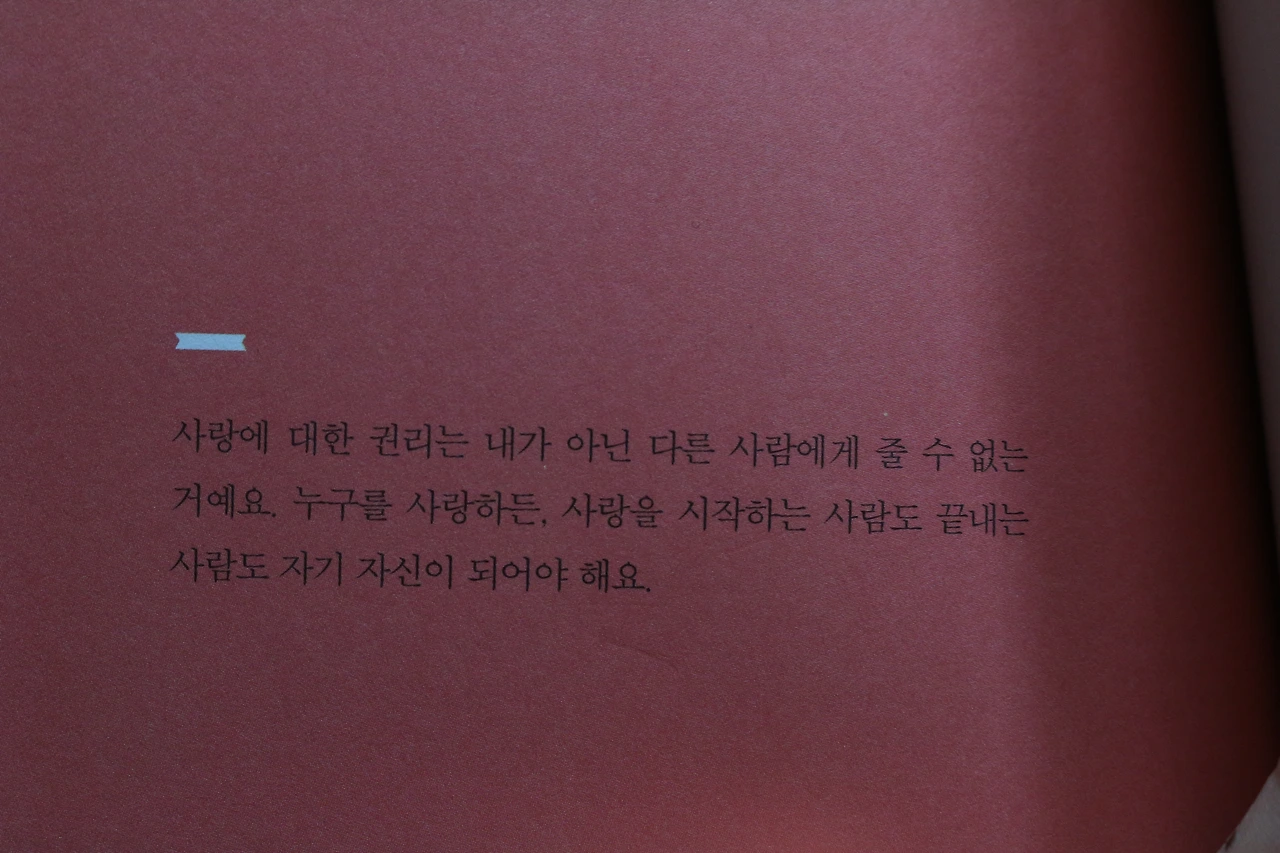 사랑에 대한 권리는 내가 아닌 다른 사람에게 줄 수 없는
거예요. 누구를 사랑하든, 사랑을 시작하는 사람도 끝내는
사람도 자기 자신이 되어야 해요.